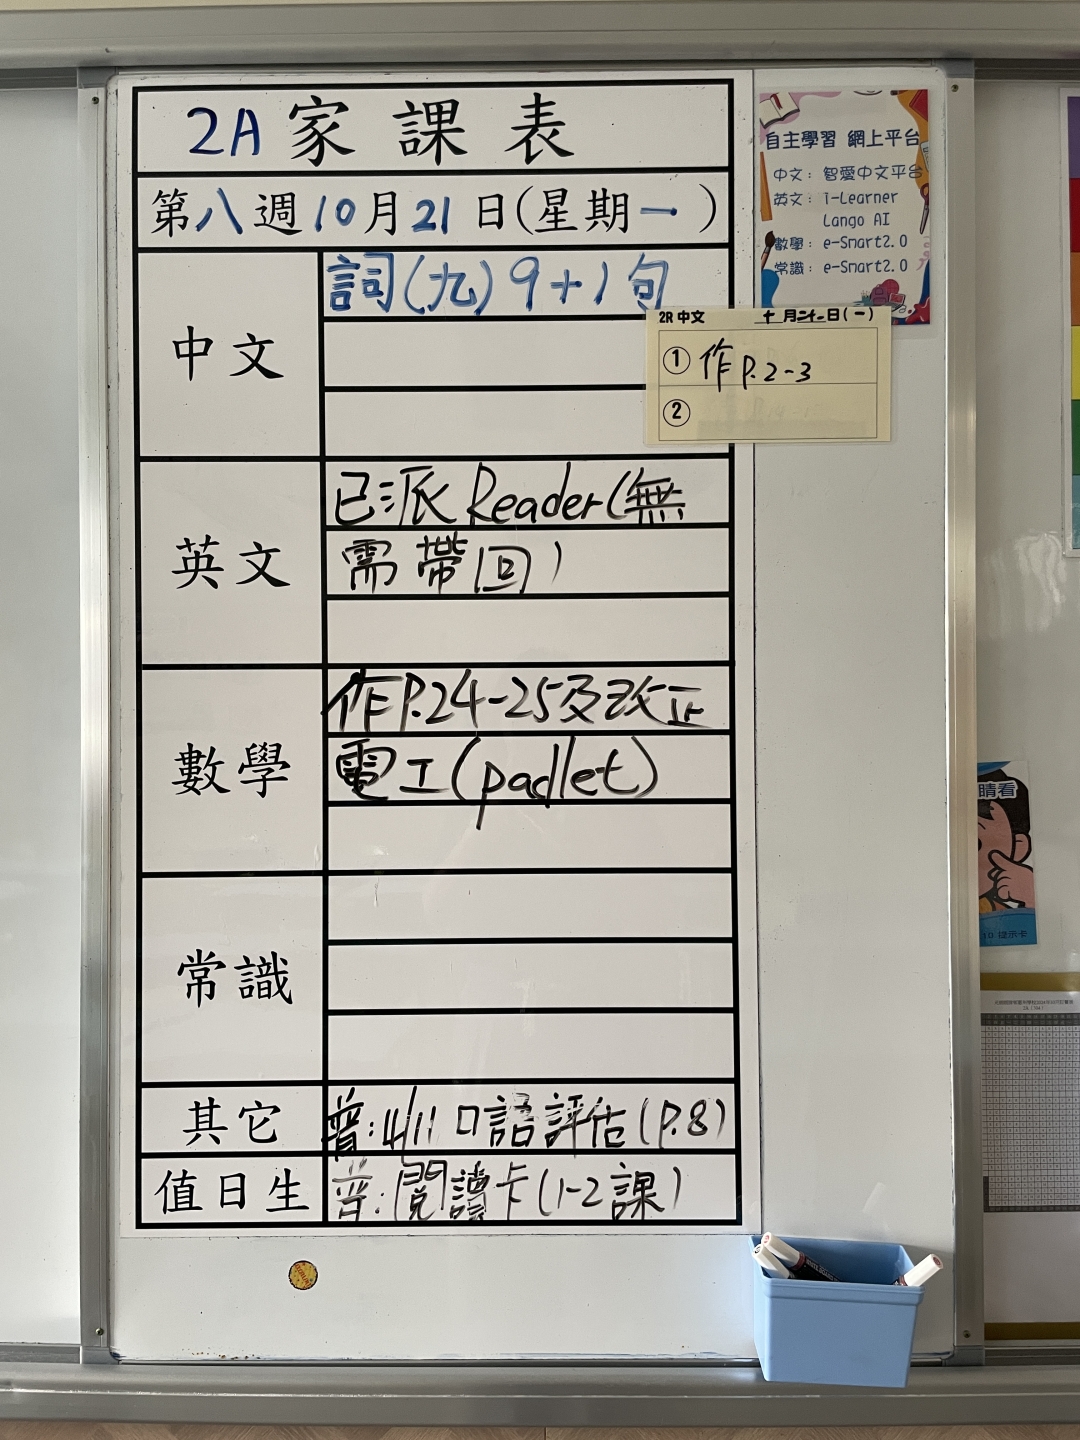 2A家課表
第八週10月21日(星期一)
中文
詞(九)9+1句
2R中文 十月廿一日(一)
① 作P.2-3
②
英文
已派Reader(無
需帶回)
數學
作P.24-25及改正
電工(padlet)
常識
其它
普:4/11口語評估(P.8)
值日生
普:閱讀卡(1-2課)
自主學習 網上平台
中文: 智愛中文平台
英文: i-Learner
Lango AI
數學: e-Smart2.0
常識: e-Smart2.0
睛看
提示卡